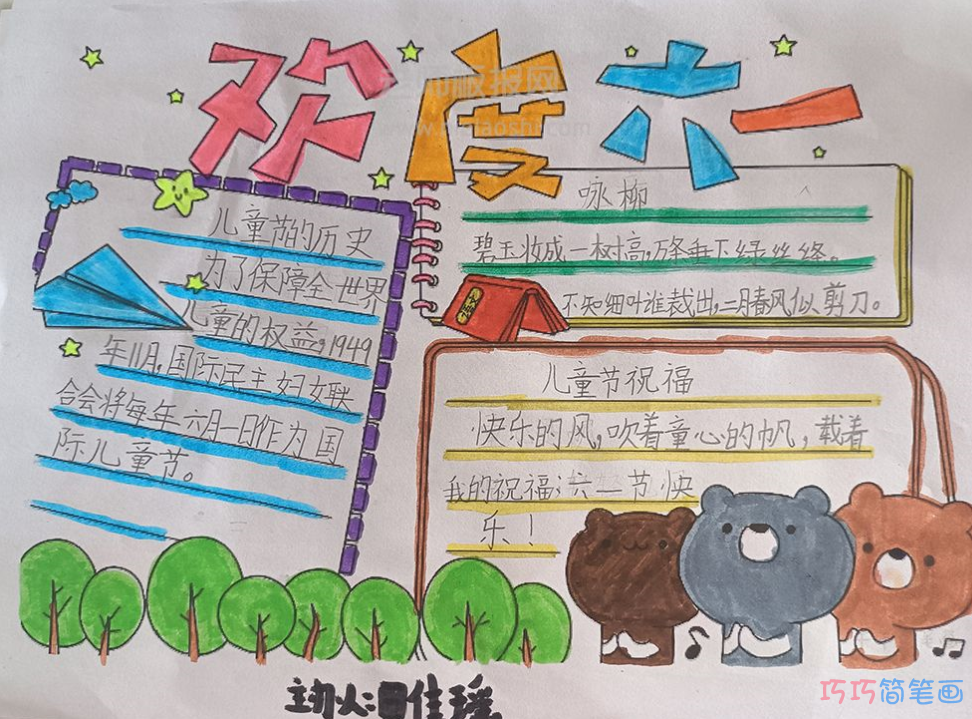 欢度六一
儿童节的历史
为了保障全世界
儿童的权益,1949
年11月,国际民主妇女联
合会将每年六月一日作为国
际儿童节。
咏柳
碧玉妆成一树高,万条垂下绿丝绦。
不知细叶谁裁出,二月春风似剪刀。
儿童节祝福
快乐的风,吹着童心的帆,载着
我的祝福:六一节快
乐!
佳瑶
巧巧简笔画